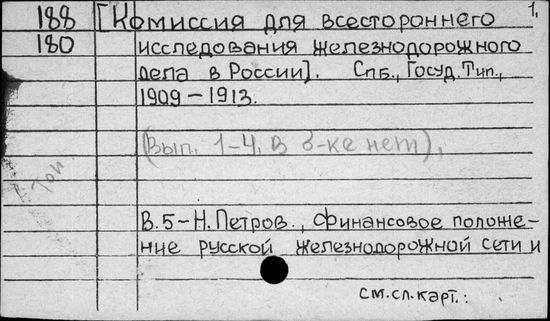 188 [Комиссия для всестороннего 1,
180 исследования железнодорожного
дела в России]. Спб., Госуд. Тип.,
1909–1913.
(Вып. 1–4, в б-ке нет),
В. 5 – Н. Петров., Финансовое положе-
ние русской железнодорожной сети и
см. сл. карт.: